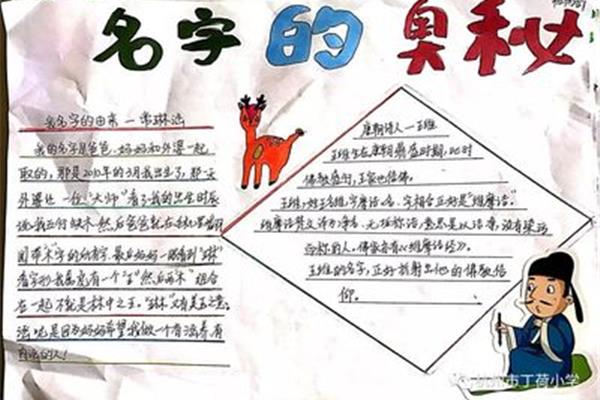 名字的奥秘
名字的由来一常琳涵
我的名字是爸爸、妈妈和外婆一起
取的,那是2010年的3月我出生了,那天
外婆让一位“大师”看了我的出生时辰
说我五行缺木,然后爸爸就在
带“木”字的所有字.最后妈妈一眼看到“琳”
看字形我属虎有一个“王”然后两木”组合
在一起不就是林中之王.“琳”又有美玉之意.
涵呢是因为妈妈希望我做一个有涵养有
的人!
唐朝诗人一王维
王维生在唐朝鼎盛时期,此时
佛教盛行,王家也信佛。
王维,姓王名维,字摩诘.名、字相合正好是“维摩诘”。
维摩诘梵文译为净名、无垢称诘,意思是以洁净,没有染污
而称的人。佛家亦有《维摩诘经》。
王维的名字,正好折射出他的佛教信
仰。
杭州市丁荷小学